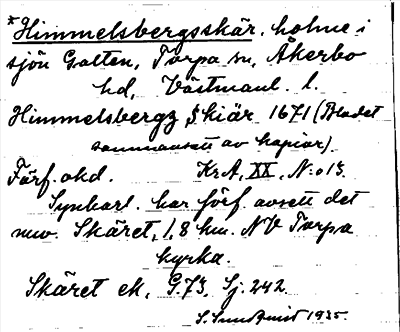 *Himmelsbergsskär, holme i
sjön Galten, Torpa sn, Åkerbo
hd, Västmanl. l.
Himmelsbergz Skiär 1671 (Bladet
sammansatt av kopior)
Förf. okd. KrA, XX, N:o 13.
Synbarl. har förf. avsett det
nuv. Skäret, 1,8 km. NV Torpa
kyrka.
Skäret ek. G.73, Sj. 242.
S. Sundquist 1935.